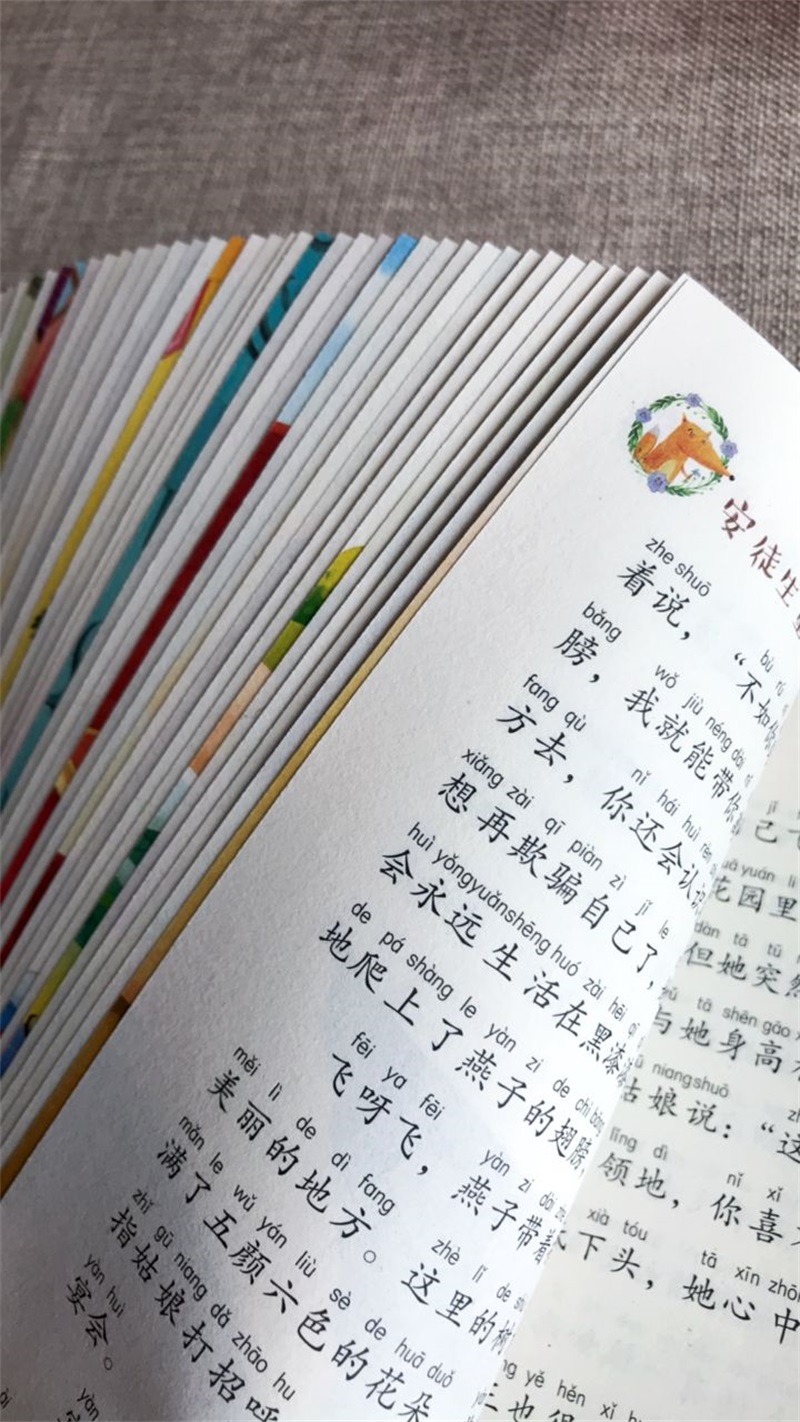 安徒生
zhe shuō bù rú
着说，“不如你
bǎng wǒ jiù néng dài
膀，我就能带你
fang qù nǐ hái huì rèn
方去，你还会认识
xiǎng zài qī piàn zì jǐ le
想再欺骗自己了，
huì yǒng yuǎn shēng huó zài hēi qī
会永远生活在黑漆
de pá shàng le yàn zi de chì bǎng
地爬上了燕子的翅膀
fēi ya fēi yàn zi dài zhe
飞呀飞，燕子带着
měi lì de dì fang zhè lǐ de
美丽的地方。这里的树
mǎn le wǔ yán liù sè de huā duǒ
满了五颜六色的花朵
zhǐ gū niang dǎ zhāo hu
指姑娘打招呼
yàn huì
宴会。
yàn
己
yuán lǐ
花园里
dàn tā tū
但她突然
tā shēn gāo
与她身高
niang shuō
姑娘说：“这
lǐng dì nǐ xǐ
领地，你喜
xià tóu tā xīn zhōng
下头，她心中
yě hěn xǐ
也很